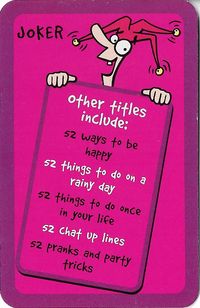 JOKER
other titles
include:
52 ways to be
happy
52 things to do on a
rainy day
52 things to do once
in your life
52 chat up lines
52 pranks and party
tricks